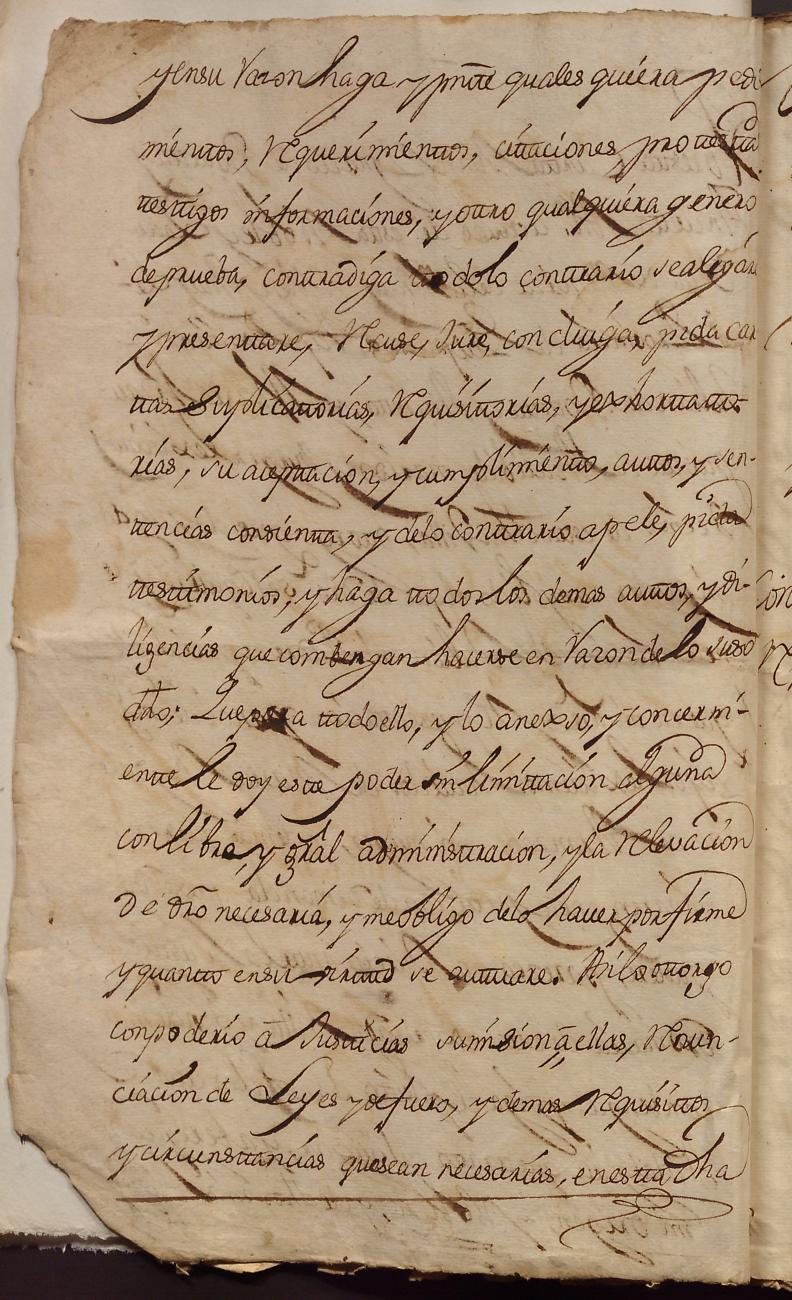 y en su Razon haga y pnte quales quiera pedi
mientos, Requerimientos, citaciones, protestta
testigos informaciones, y otro qualquiera genero
de prueba, contradiga todo lo contrario se alegár
y presentare, Recuse, Jure, concluiga, pida car
tas Suplicatorias, Requisitorias, y exhortato-
rias, su aceptación, y cumplimiento, autos, y sen-
tencias consienta, y de lo contrario apele, pida
testimonios, y haga todos los demas autos, y di-
ligencias que combengan hacerse en Razon de lo suso
dho; Que para todo ello, y lo anexso, y concerni-
ente le doy este poder sin limitación alguna
con libre, y gràl administracion, y la Relevación
De dro necesaria, y me obligo de lo haver por firme
y quanto en su virtud se autuare. Asi lo otorgo
con poderio â Justicias sumision â ellas, Renun-
ciación de Leyes y de fuero, y demas Requisitos
y circunstancias que sean necesarias, en esta Dha